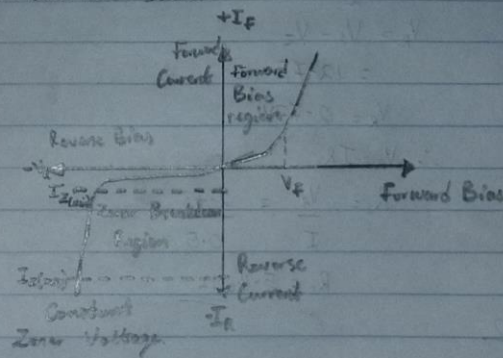 +I_F
Forward
Current
Forward
Bias
region
Reverse Bias
V_F
Forward Bias
I_Z(min)
Zener Breakdown
Region
I_Z(max)
Reverse
Current
Constant
Zener Voltage
-I_R